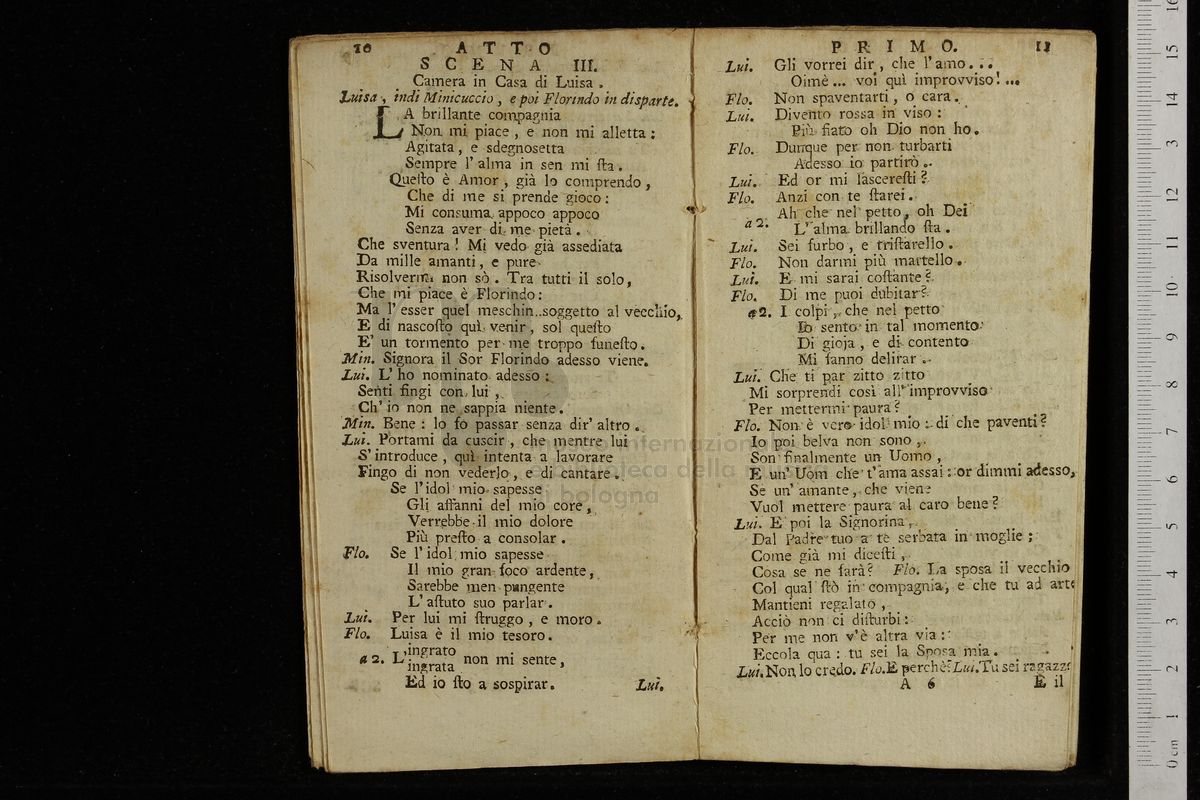 10 ATTO
SCENA III.
Camera in Casa di Luisa.
Luisa, indi Minicuccio, e poi Florindo in disparte.
LA brillante compagnia
Non mi piace, e non mi alletta:
Agitata, e sdegnosetta
Sempre l'alma in sen mi ſta.
Queſto è Amor, già lo comprendo,
Che di me si prende gioco:
Mi consuma appoco appoco
Senza aver di me pietà.
Che sventura! Mi vedo già assediata
Da mille amanti, e pure
Risolvermi non sò. Tra tutti il solo,
Che mi piace è Florindo:
Ma l'esser quel meschin soggetto al vecchio,
E di nascoſto quì venir, sol queſto
E' un tormento per me troppo funeſto.
Min. Signora il Sor Florindo adesso viene.
Lui. L'ho nominato adesso:
Senti fingi con lui,
Ch'io non ne sappia niente.
Min. Bene: lo fo passar senza dir'altro.
Lui. Portami da cuscir, che mentre lui
S'introduce, quì intenta a lavorare
Fingo di non vederlo, e di cantare.
Se l'idol mio sapesse
Gli affanni del mio core,
Verrebbe il mio dolore
Più preſto a consolar.
Flo. Se l'idol mio sapesse
Il mio gran foco ardente,
Sarebbe men pungente
L'aſtuto suo parlar.
Lui. Per lui mi ſtruggo, e moro.
Flo. Luisa è il mio tesoro.
a 2. L'ingrato
ingrata non mi sente,
Ed io ſto a sospirar.
Lui.
PRIMO. 11
Lui. Gli vorrei dir, che l'amo...
Oimè... voi quì improvviso!...
Flo. Non spaventarti, o cara.
Lui. Divento rossa in viso:
Più fiato oh Dio non ho.
Flo. Dunque per non turbarti
Adesso io partirò.
Lui. Ed or mi lasceresti?
Flo. Anzi con te ſtarei.
a 2. Ah che nel petto, oh Dei
L'alma brillando ſta.
Lui. Sei furbo, e triſtarello.
Flo. Non darmi più martello.
Lui. E mi sarai coſtante?
Flo. Di me puoi dubitar?
a 2. I colpi, che nel petto
Io sento in tal momento
Di gioja, e di contento
Mi fanno delirar.
Lui. Che ti par zitto zitto
Mi sorprendi così all'improvviso
Per mettermi paura?
Flo. Non è vero idol mio: di che paventi?
Io poi belva non sono,
Son finalmente un Uomo,
E un'Uom che t'ama assai: or dimmi adesso,
Se un'amante, che viene
Vuol mettere paura al caro bene?
Lui. E poi la Signorina,
Dal Padre tuo a te serbata in moglie;
Come già mi diceſti,
Cosa se ne farà? Flo. La sposa il vecchio
Col qual ſtò in compagnia, e che tu ad arte
Mantieni regalato,
Acciò non ci diſturbi:
Per me non v'è altra via:
Eccola qua: tu sei la Sposa mia.
Lui. Non lo credo. Flo. E perchè? Lui. Tu sei ragazzo
A 6 E il